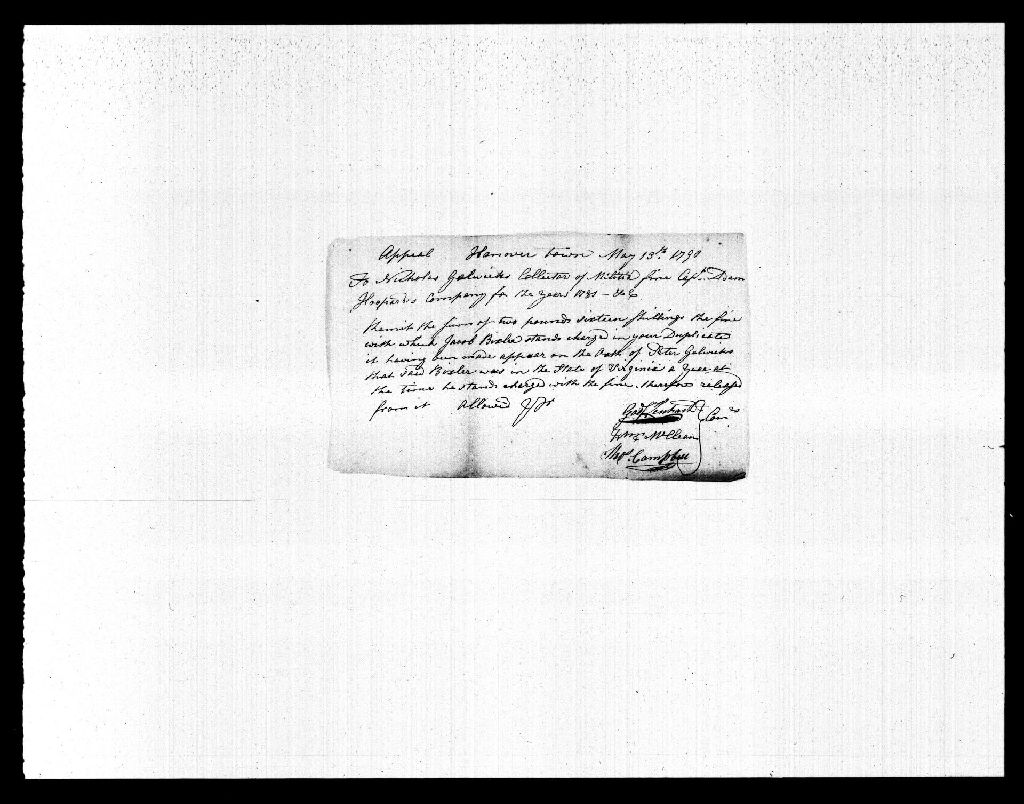 Appeal Hanover town May 13th 1790
To Nicholas Gelwicks Collector of Militia fine Capt. Adam
Company for the year 1781 - &c
Remit the sum of two pounds sixteen shillings the fine
with which Jacob Bixler stands charged in your Duplicate
it having been made appear on the Oath of Peter Gelwicks
that said Bixler was in the State of Virginia a year at
the time he stands charged with the fine. therefore released
from it Allowed
Godf. Lenhart
Wm McClean Com.rs
Thos. Campbell